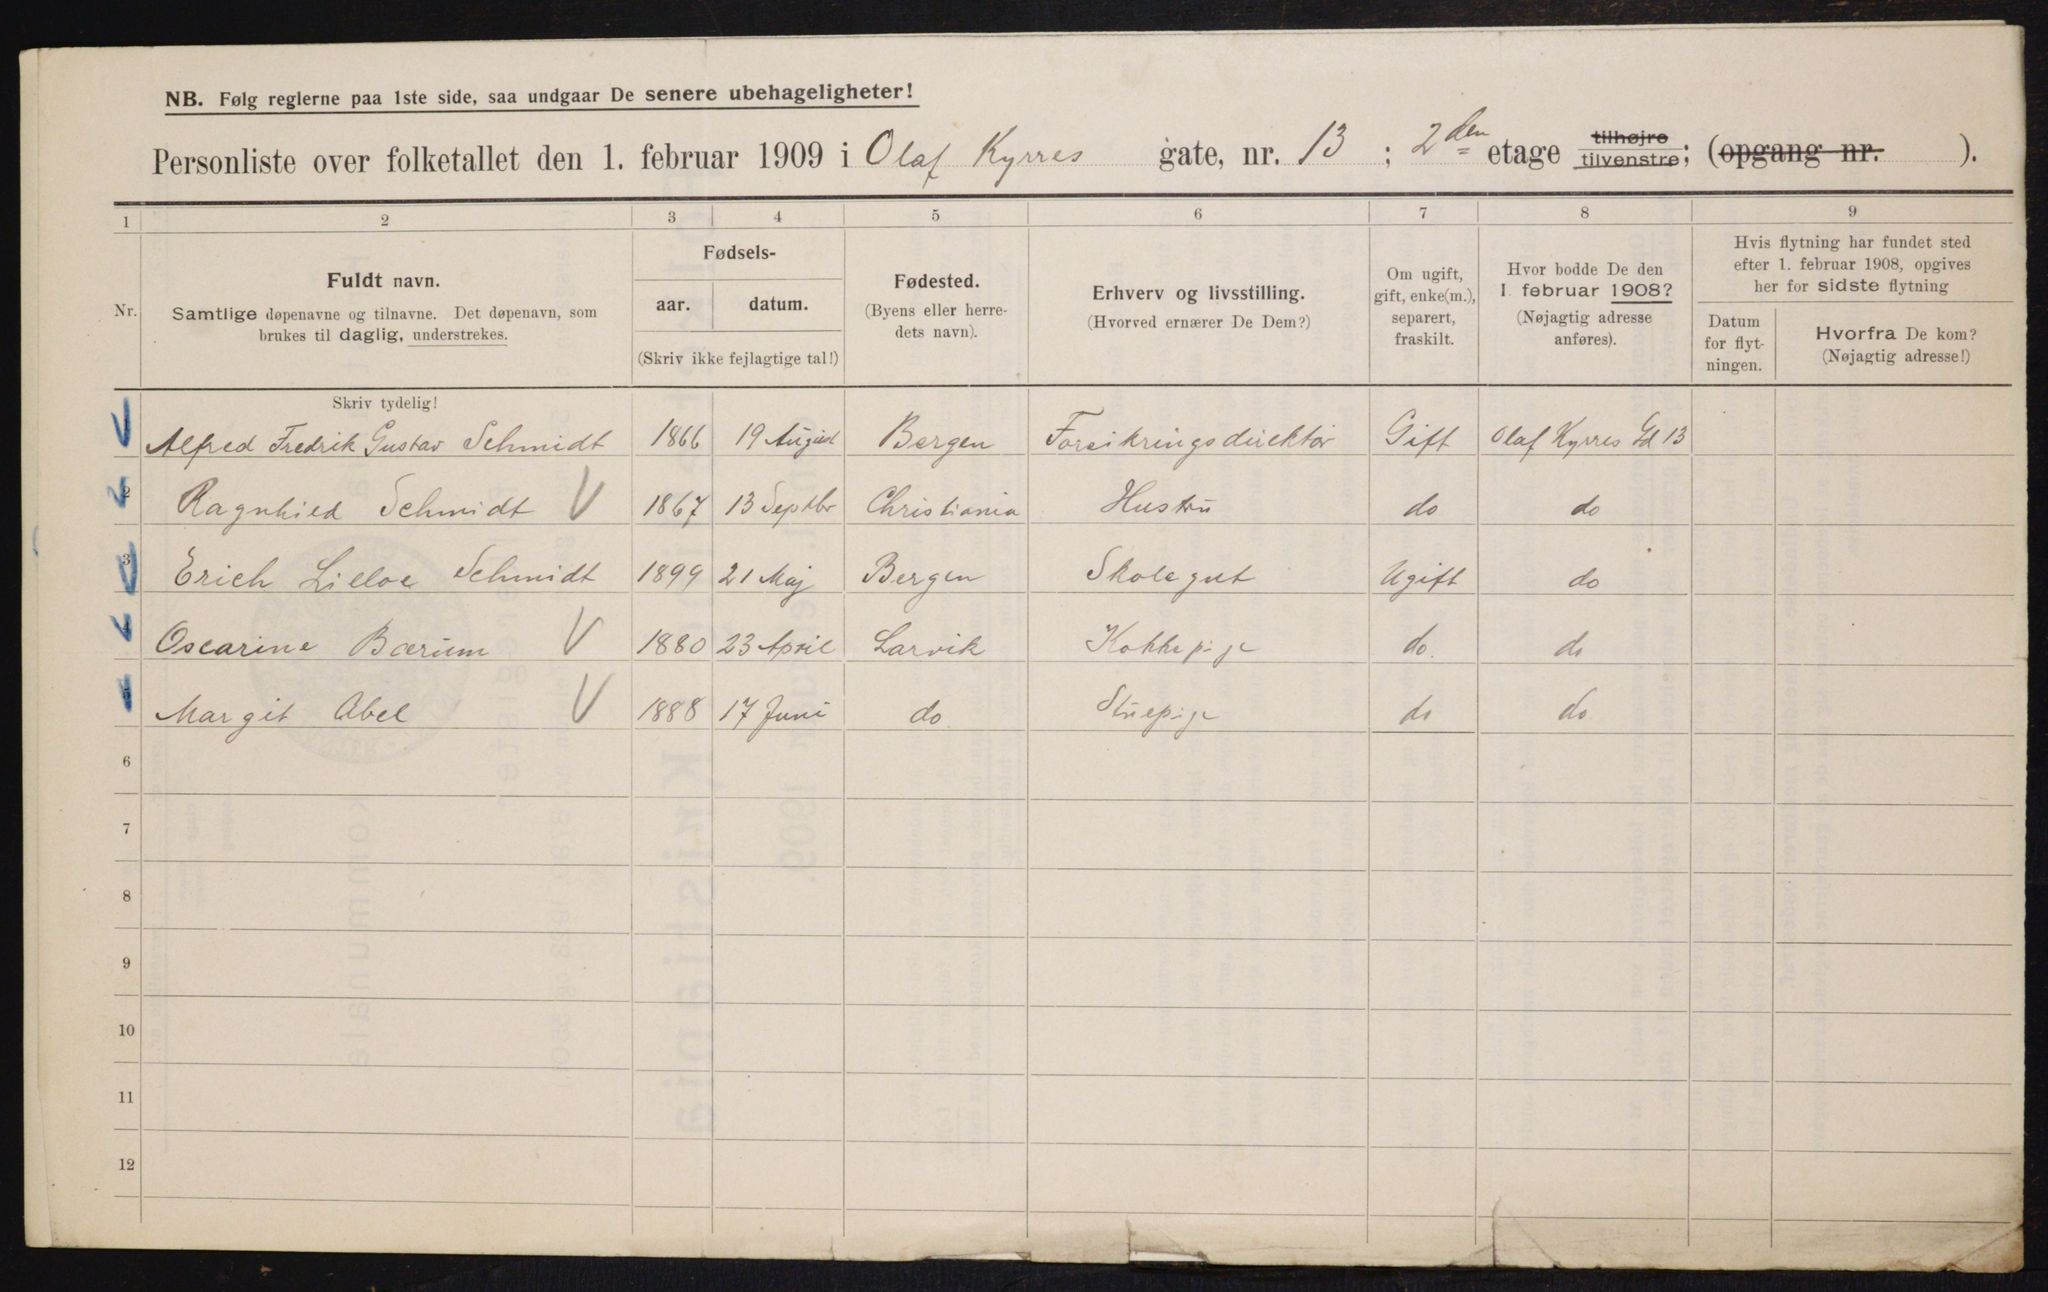 NB. Følg reglerne paa 1ste side, saa undgaar De senere ubehageligheter!
Personliste over folketallet den 1. februar 1909 i Olaf Kyrres gate, nr. 13 ; 2den etage tilhøjre tilvenstre; (opgang nr. ).
1 2 3 4 5 6 7 8 9
Nr.
Fuldt navn.
Samtlige døpenavne og tilnavne. Det døpenavn, som
brukes til daglig, understrekes.
Fødsels-
aar. datum.
(Skriv ikke fejlagtige tal!)
Fødested.
(Byens eller herre-
dets navn).
Erhverv og livsstilling.
(Hvorved ernærer De Dem?)
Om ugift,
gift, enke(m.),
separert,
fraskilt.
Hvor bodde De den
1. februar 1908?
(Nøjagtig adresse
anføres).
Hvis flytning har fundet sted
efter 1. februar 1908, opgives
her for sidste flytning
Datum
for flyt-
ningen.
Hvorfra De kom?
(Nøjagtig adresse!)
Skriv tydelig!
Alfred Fredrik Gustav Schmidt 1866 19 August Bergen Forsikringsdirektør Gift Olaf Kyrres Gd 13
2 Ragnhild Schmidt V 1867 13 Septbr Christiania Hustru do do
3 Erich Lilloe Schmidt 1899 21 Maj Bergen Skolegut Ugift do
4 Oscarine Bærum V 1880 23 April Larvik Kokkepige do. do
5 Margit Abel V 1888 17 Juni do Stuepige do do
6
7
8
9
10
11
12